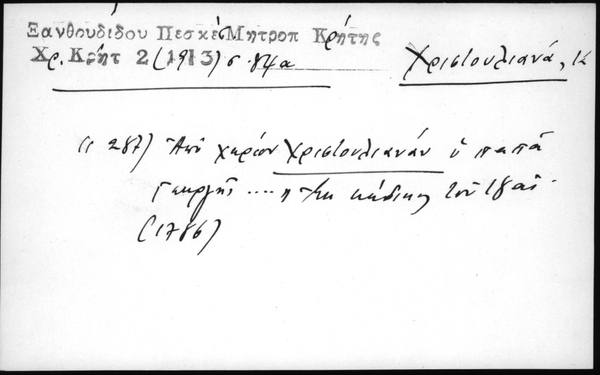 Ξανθουδιδου Πεσκές Μητροπ Κρήτης
Χρ. Κρήτ 2 (1913) σ. 84α
Χριστουλιανά,
(σ 287) Από χωρίον Χριστουλιανάν ὁ παπᾶ
Γεωργης .... η κώδικας τοῦ
(1786)